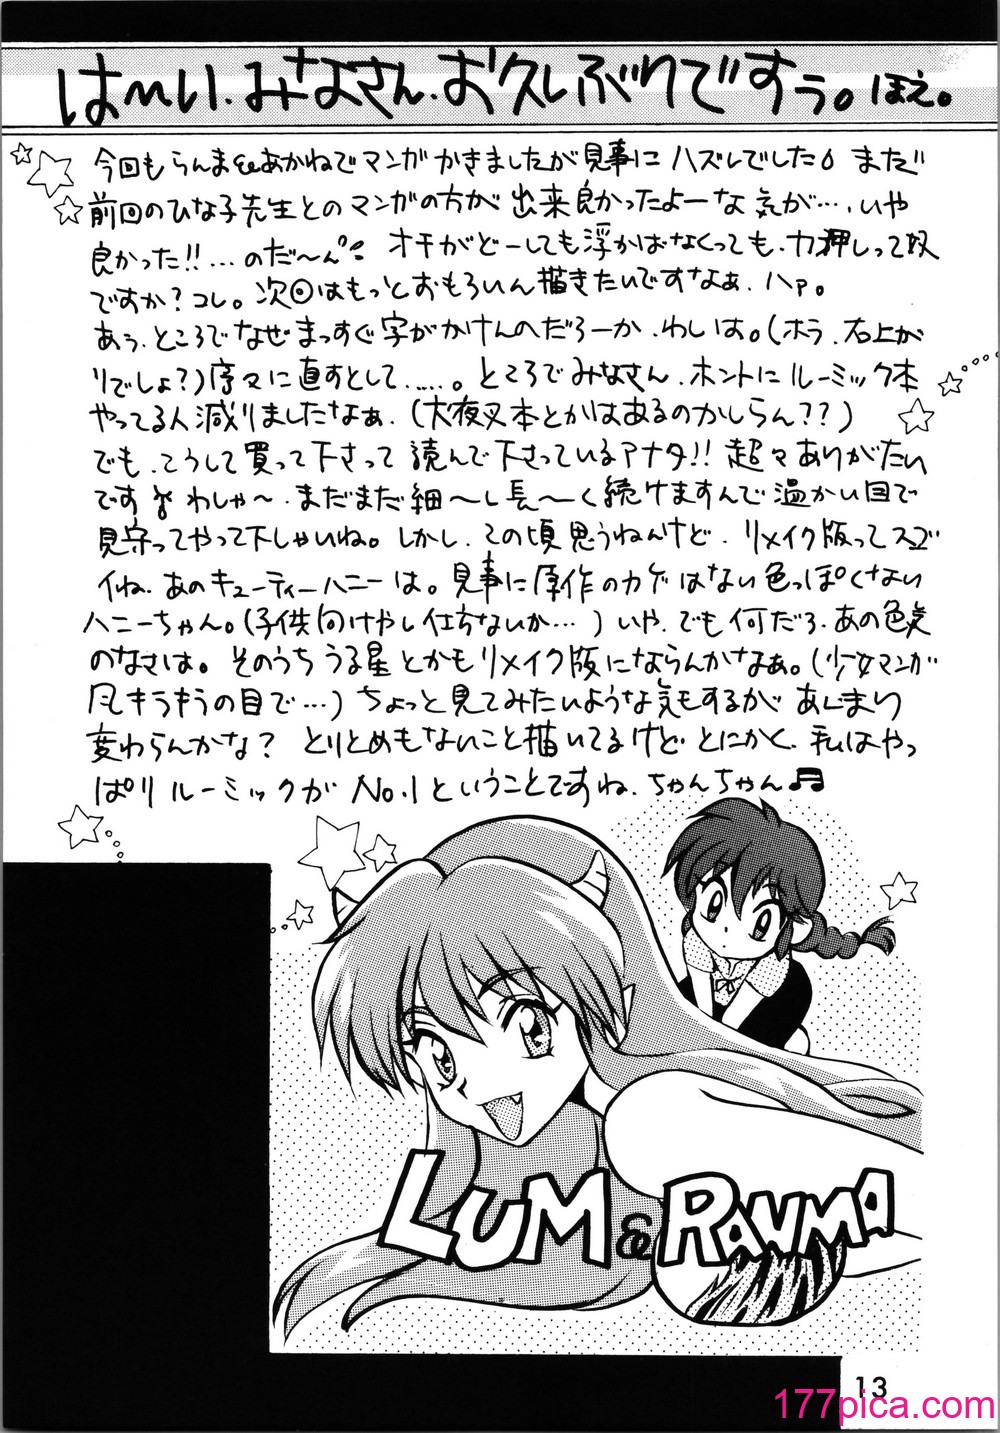 は〜い、みなさん、お久しぶりですぅ。ほえ。
今回もらんま&あかねでマンガかきましたが見事にハズレでした。まだ
前回のひな子先生とのマンガの方が出来良かったよーな気が…、いや
良かった!!…のだ〜ん。オチがどーしても浮かばなくっても、力押しって奴
ですか?コレ。次回はもっとおもろいん描きたいですなぁ、ハァ。
あぅ、ところでなぜまっすぐ字がかけんのだろーか、わしは。(ホラ、右上が
りでしょ?)序々に直すとして……。ところでみなさん、ホントにルーミック本
やってる人減りましたなぁ、(犬夜叉本とかはあるのかしらん??)
でも、こうして買って下さって読んで下さっているアナタ!!超々ありがたい
です わしゃ〜、まだまだ細〜し長〜く続けますんで温かい目で
見守ってやって下しゃいね。しかし、この頃思うねんけど、リメイク版ってスゴ
イね、あのキューティーハニーは。見事に原作のカゲはない色っぽくない
ハニーちゃん。(子供向けやし仕ちないか…)いや、でも何だろ、あの色気
のなさは。そのうちうる星とかもリメイク版にならんかなぁ。(少女マンガ
風キラキラの目で…)ちょっと見てみたいような気もするがあんまり
変わらんかな?とりとめもないこと描いてるけど、とにかく、私はやっ
ぱりルーミックがNo.1ということですね、ちゃんちゃん♬
LUM & RANMA
13
177pica.com